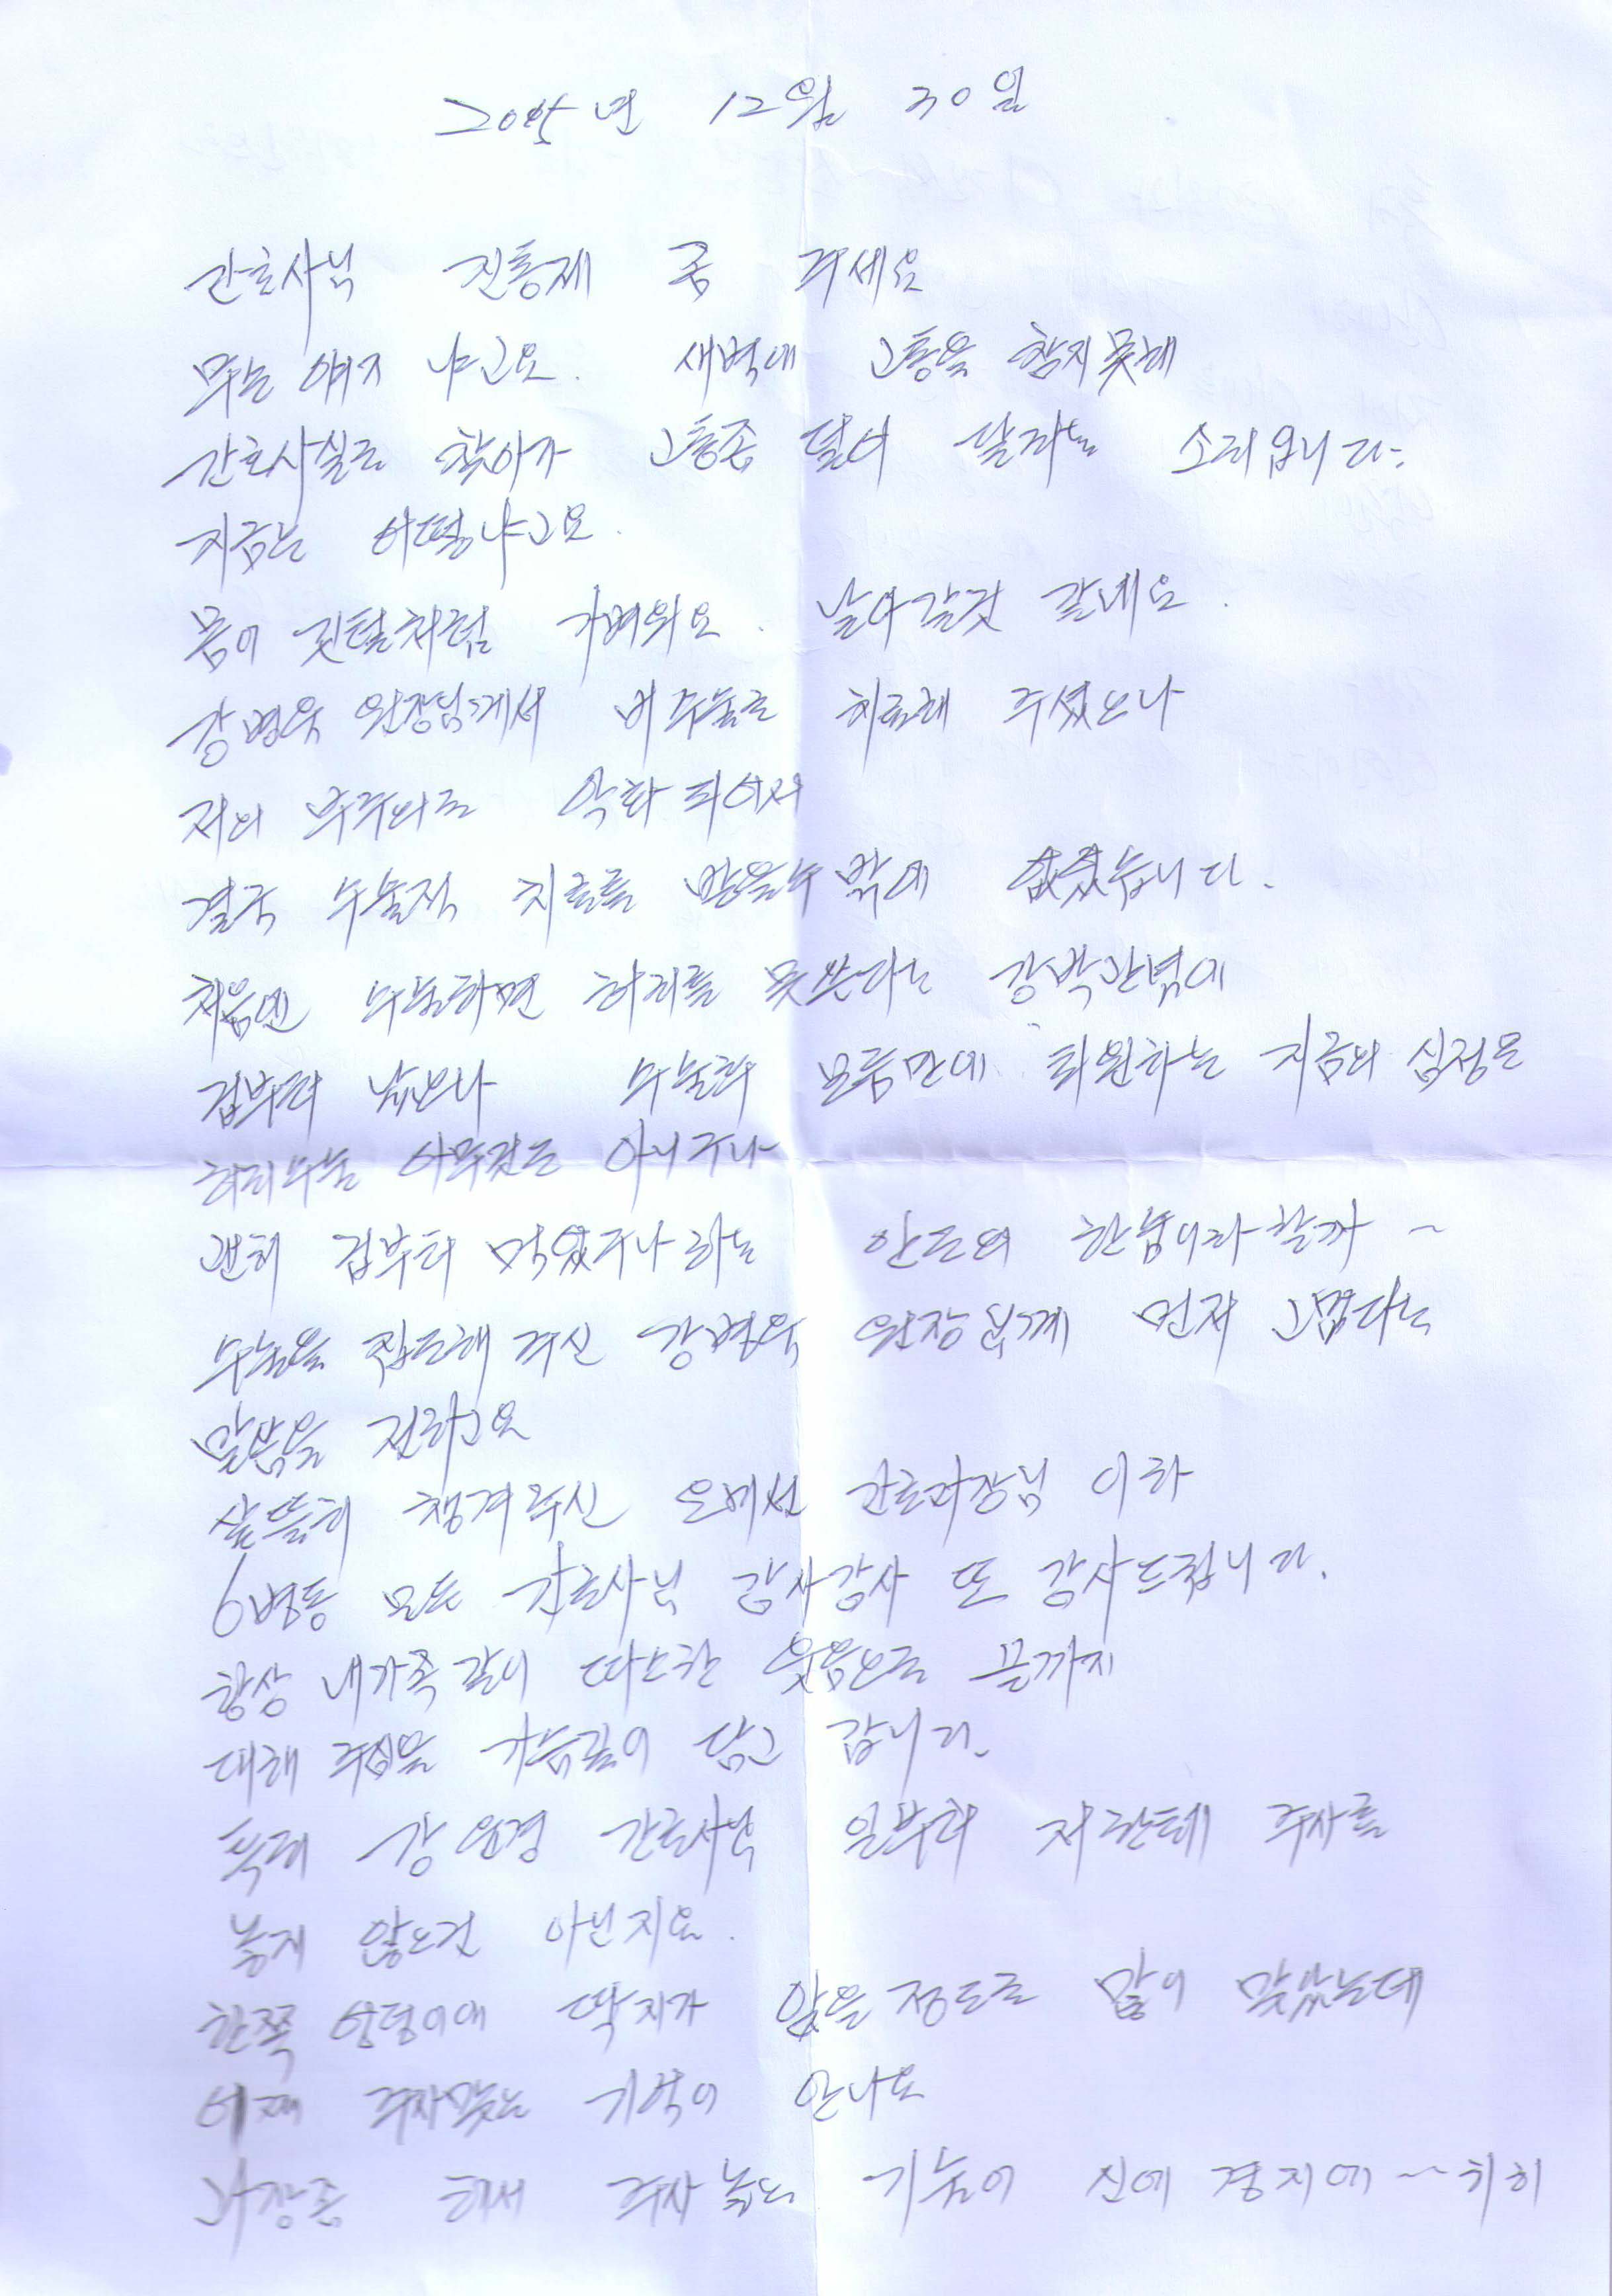 12월 30일
간호사님 진통제 좀 주세요
무슨 얘기 냐고요. 새벽에 고통을 참지못해
간호사실로 찾아가 고통좀 덜어 달라는 소리입니다.
지금은 어떻냐고요.
몸이 깃털처럼 가벼워요. 날아갈것 같네요.
강병욱 원장님께서 비수술로 치료해 주셨으나
저의 부주의로 악화 되어서
결국 수술적 치료를 받을수 밖에 없었습니다.
처음엔 수술하면 허리를 못쓴다는 강박관념에
겁부터 났으나 수술후 보름만에 퇴원하는 지금의 심정은
허리수술 아무것도 아니구나
괜히 겁부터 먹었구나 하는 안도의 한숨이라 할까 ~
수술을 집도해 주신 강병욱 원장님께 먼저 고맙다는
말씀을 전하고요
살뜰히 챙겨주신 간호과장님 이하
6병동 모든 간호사님 감사감사 또 감사드립니다.
항상 내가족 같이 따스한 웃음으로 끝까지
대해 주심을 가슴깊이 담고 갑니다.
특히 간호사님 일부러 저한테 주사를
놓지 않으건 아닌지요.
한쪽 엉덩이에 딱지가 앉을 정도로 많이 맞았는데
어째 주사맞는 기억이 안나요
과장좀 해서 주사 놓는 기술이 신에 경지에 ~~ 히히